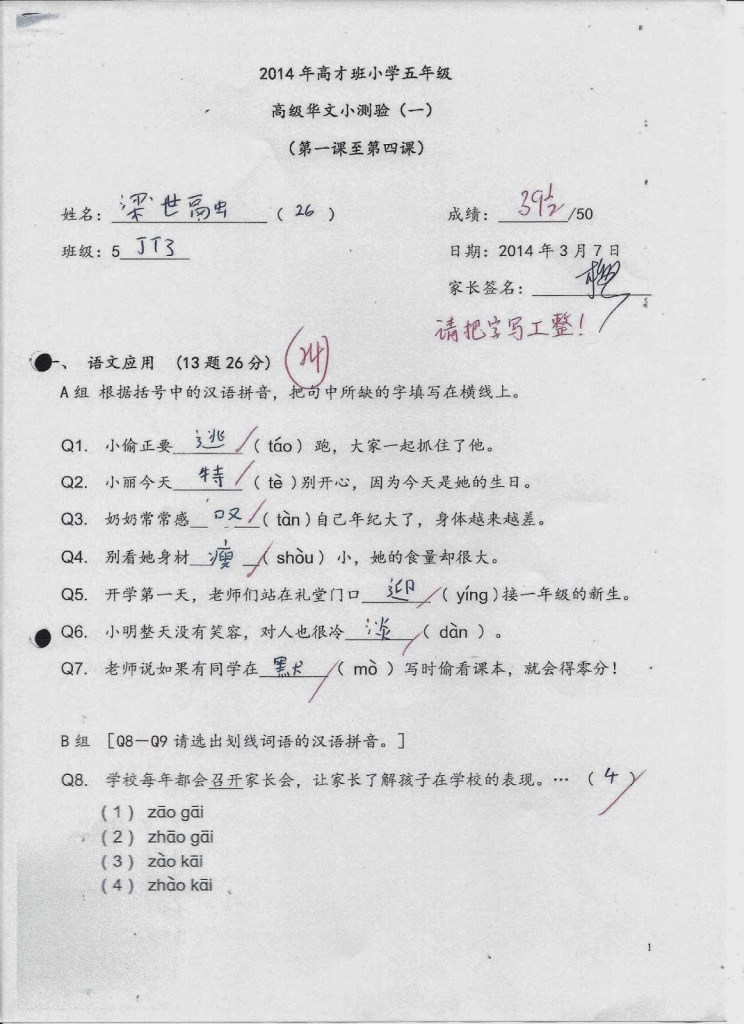 2014年高才班小学五年级
高级华文小测验（一）
（第一课至第四课）
姓名：梁世融（26） 成绩：39½/50
班级：5 JT3 日期：2014年3月7日
家长签名：
请把字写工整！
一、 语文应用 （13题26分） 24
A组 根据括号中的汉语拼音，把句中所缺的字填写在横线上。
Q1. 小偷正要 逃 （ táo ）跑，大家一起抓住了他。
Q2. 小丽今天 特 （ tè ）别开心，因为今天是她的生日。
Q3. 奶奶常常感 叹 （ tàn ）自己年纪大了，身体越来越差。
Q4. 别看她身材 瘦 （ shòu ）小，她的食量却很大。
Q5. 开学第一天，老师们站在礼堂门口 迎 （ yíng ）接一年级的新生。
Q6. 小明整天没有笑容，对人也很冷 淡 （ dàn ）。
Q7. 老师说如果有同学在 默 （ mò ）写时偷看课本，就会得零分！
B组 [Q8－Q9 请选出划线词语的汉语拼音。]
Q8. 学校每年都会召开家长会，让家长了解孩子在学校的表现。… （ 4 ）
（1） zāo gāi
（2） zhāo gāi
（3） zào kāi
（4） zhào kāi
1